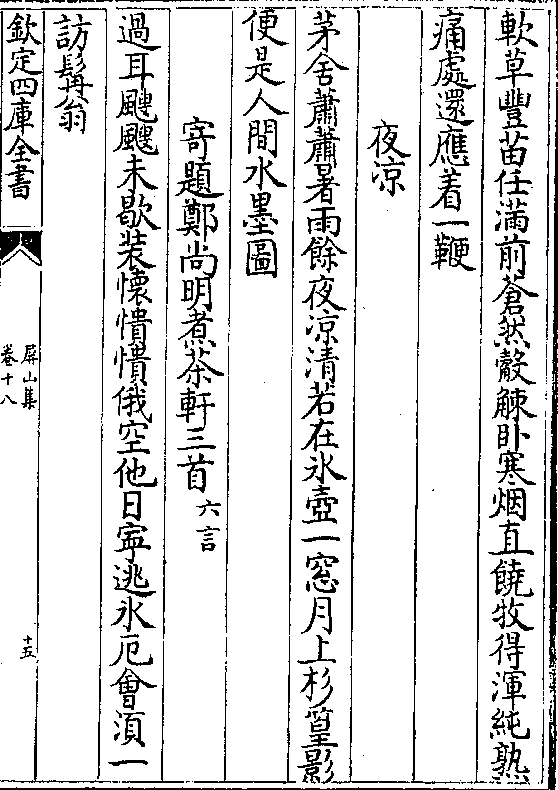 軟草豐苗任滿前蒼然觳觫卧寒烟直饒牧得渾純熟
痛處還應着一鞭
夜凉
茅舍蕭蕭暑雨餘夜凉清若在氷壺一窓月上杉篁影
便是人間水墨圖
寄題鄭尚明煮茶軒三首六言
過耳颼颼未歇装懐憒憒俄空他日寜逃氷厄㑹湏一
訪髯翁
欽定四庫全書
屏山集
卷十八
十五